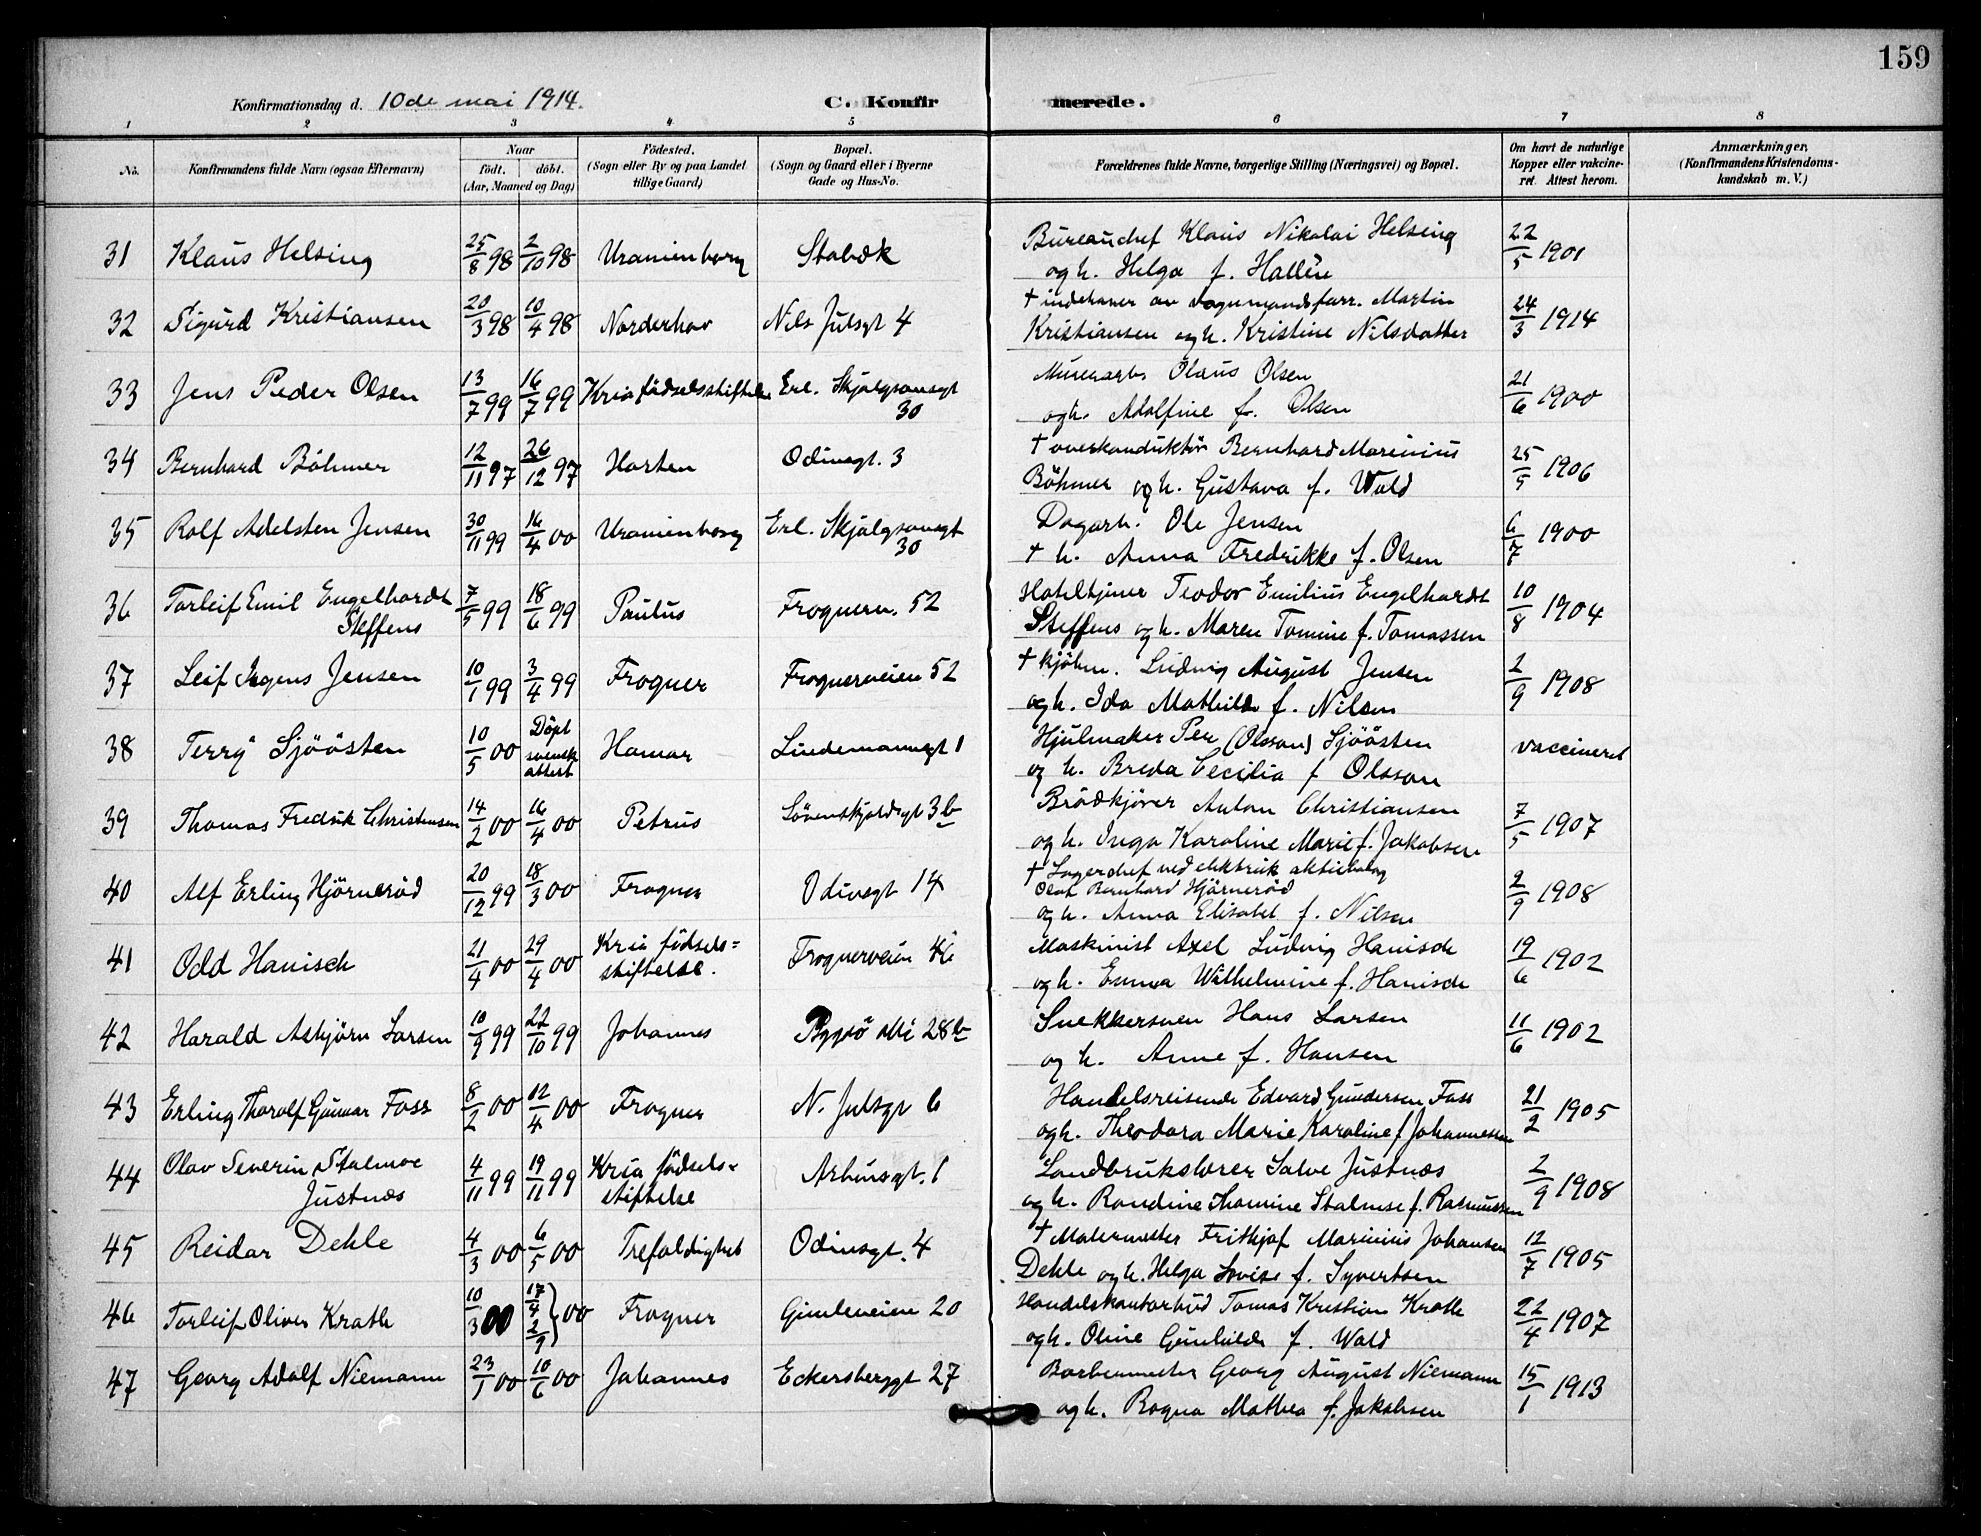 159
Konfirmationsdag d. 10de mai 1914. C. Konfirmerede.
1 2 3 4 5 6 7 8
No. Konfirmandens fulde Navn (ogsaa Efternavn) Naar födt. döbt. (Aar, Maaned og Dag) Födested. (Sogn eller By og paa Landet tillige Gaard) Bopæl. (Sogn og Gaard eller i Byerne Gade og Hus-No. Forældrenes fulde Navne, borgerlige Stilling (Næringsvei) og Bopæl. Om havt de naturlige Kopper eller vakcineret. Attest herom. Anmærkninger, (Konfirmandens Kristendomskundskab m. V.)
31 Klaus Helsing 25/8 98 2/10 98 Uranienborg Stabæk Bureauchef Klaus Nikolai Helsing 22/5 1901
og h. Helga f. Hallén
32 Sigurd Kristiansen 20/3 98 10/4 98 Norderhov Nils Julsgt 4 † indehaver av vognmandsforr. Martin 24/3 1914
Kristiansen og h. Kristine Nilsdatter
33 Jens Peder Olsen 13/7 99 16/7 99 Kria födselsstiftelse Erl. Skjalgsonsgt 30 Murerarb. Olaus Olsen 21/6 1900
og h. Adolfine f. Olsen
34 Bernhard Böhmer 12/11 97 26/12 97 Horten Odinsgt. 3 † overkonduktör Bernhard Marinius 25/5 1906
Böhmer og h. Gustava f. Wold
35 Rolf Adelsten Jensen 30/11 99 16/4 00 Uranienborg Erl. Skjalgsonsgt 30 Dagarb. Ole Jensen 6/7 1900
† h. Anna Fredrikke f. Olsen
36 Torleif Emil Engelhardt Steffens 7/5 99 18/6 99 Paulus Frognerv. 52 Hoteltjener Teodor Emilius Engelhardt 10/8 1904
Steffens og h. Maren Tomine f. Tomassen
37 Leif Jensen 10/1 99 3/4 99 Frogner Frognerveien 52 † kjöbm. Ludvig August Jensen 2/9 1908
og h. Ida Mathilde f. Nilsen
38 Terry Sjöösten 10/5 00 Döpt svensk attest Hamar Lindemannsgt 1 Hjulmaker Per (Olsson) Sjöösten vaccineret
og h. Breda Cecilia f Olsson
39 Thomas Fredrik Christensen 14/2 00 16/4 00 Petrus Lövenskjoldsgt 3b Brödkjörer Anton Christiansen 7/5 1907
og h. Inga Karoline Marie f. Jakobsen
40 Alf Erling Hjörneröd 20/12 99 18/3 00 Frogner Odinsgt 14 † Lagerchef ved elektrisk aktiebolag 2/9 1908
Olaf Bernhard Hjörneröd
og h. Anna Elisabet f. Nilsen
41 Odd Hanisch 21/4 00 29/4 00 Kria födsels= stiftelse. Frognerveien Maskinist Axel Ludvig Hanisch 19/6 1902
og h. Emma Wilhelmine f. Hanisch
42 Harald Asbjörn Larsen 10/9 99 22/10 99 Johannes Bygdö alle 28b Snekkersven Hans Larsen 11/6 1902
og h. Anne f. Hansen
43 Erling Thoralf Gunnar Foss 8/2 00 12/4 00 Frogner N. Julsgt 6 Handelsreisende Edvard Gundersen Foss 21/2 1905
og h. Theodora Marie Karoline f Johannessen
44 Olav Severin Stalmoe Justnæs 4/11 99 19/11 99 Kria födsels= stiftelse Arbinsgt. 1 Landbrukslærer Salve Justnæs 2/9 1908
og h. Randine Thomine Stalmoe f. Rasmussen
45 Reidar Dehle 4/3 00 6/5 00 Trefoldighet Odinsgt. 4 † Malermester Frithjof Marinius Johansen 12/7 1905
Dehle og h. Helga Lovise f. Syvertsen
46 Torleif Oliver Krath 10/3 00 17/4 2/9 } 00 Frogner Gimleveien 20 Handelskontorbud Tomas Kristian Krath 22/4 1907
og h. Oline Gunhilde f. Wold
47 Georg Adolf Niemann 23/1 00 10/6 00 Johannes Eckersbergsgt 27 Barbermester Georg August Niemann 15/1 1913
og h. Ragna Mathea f. Jakobsen